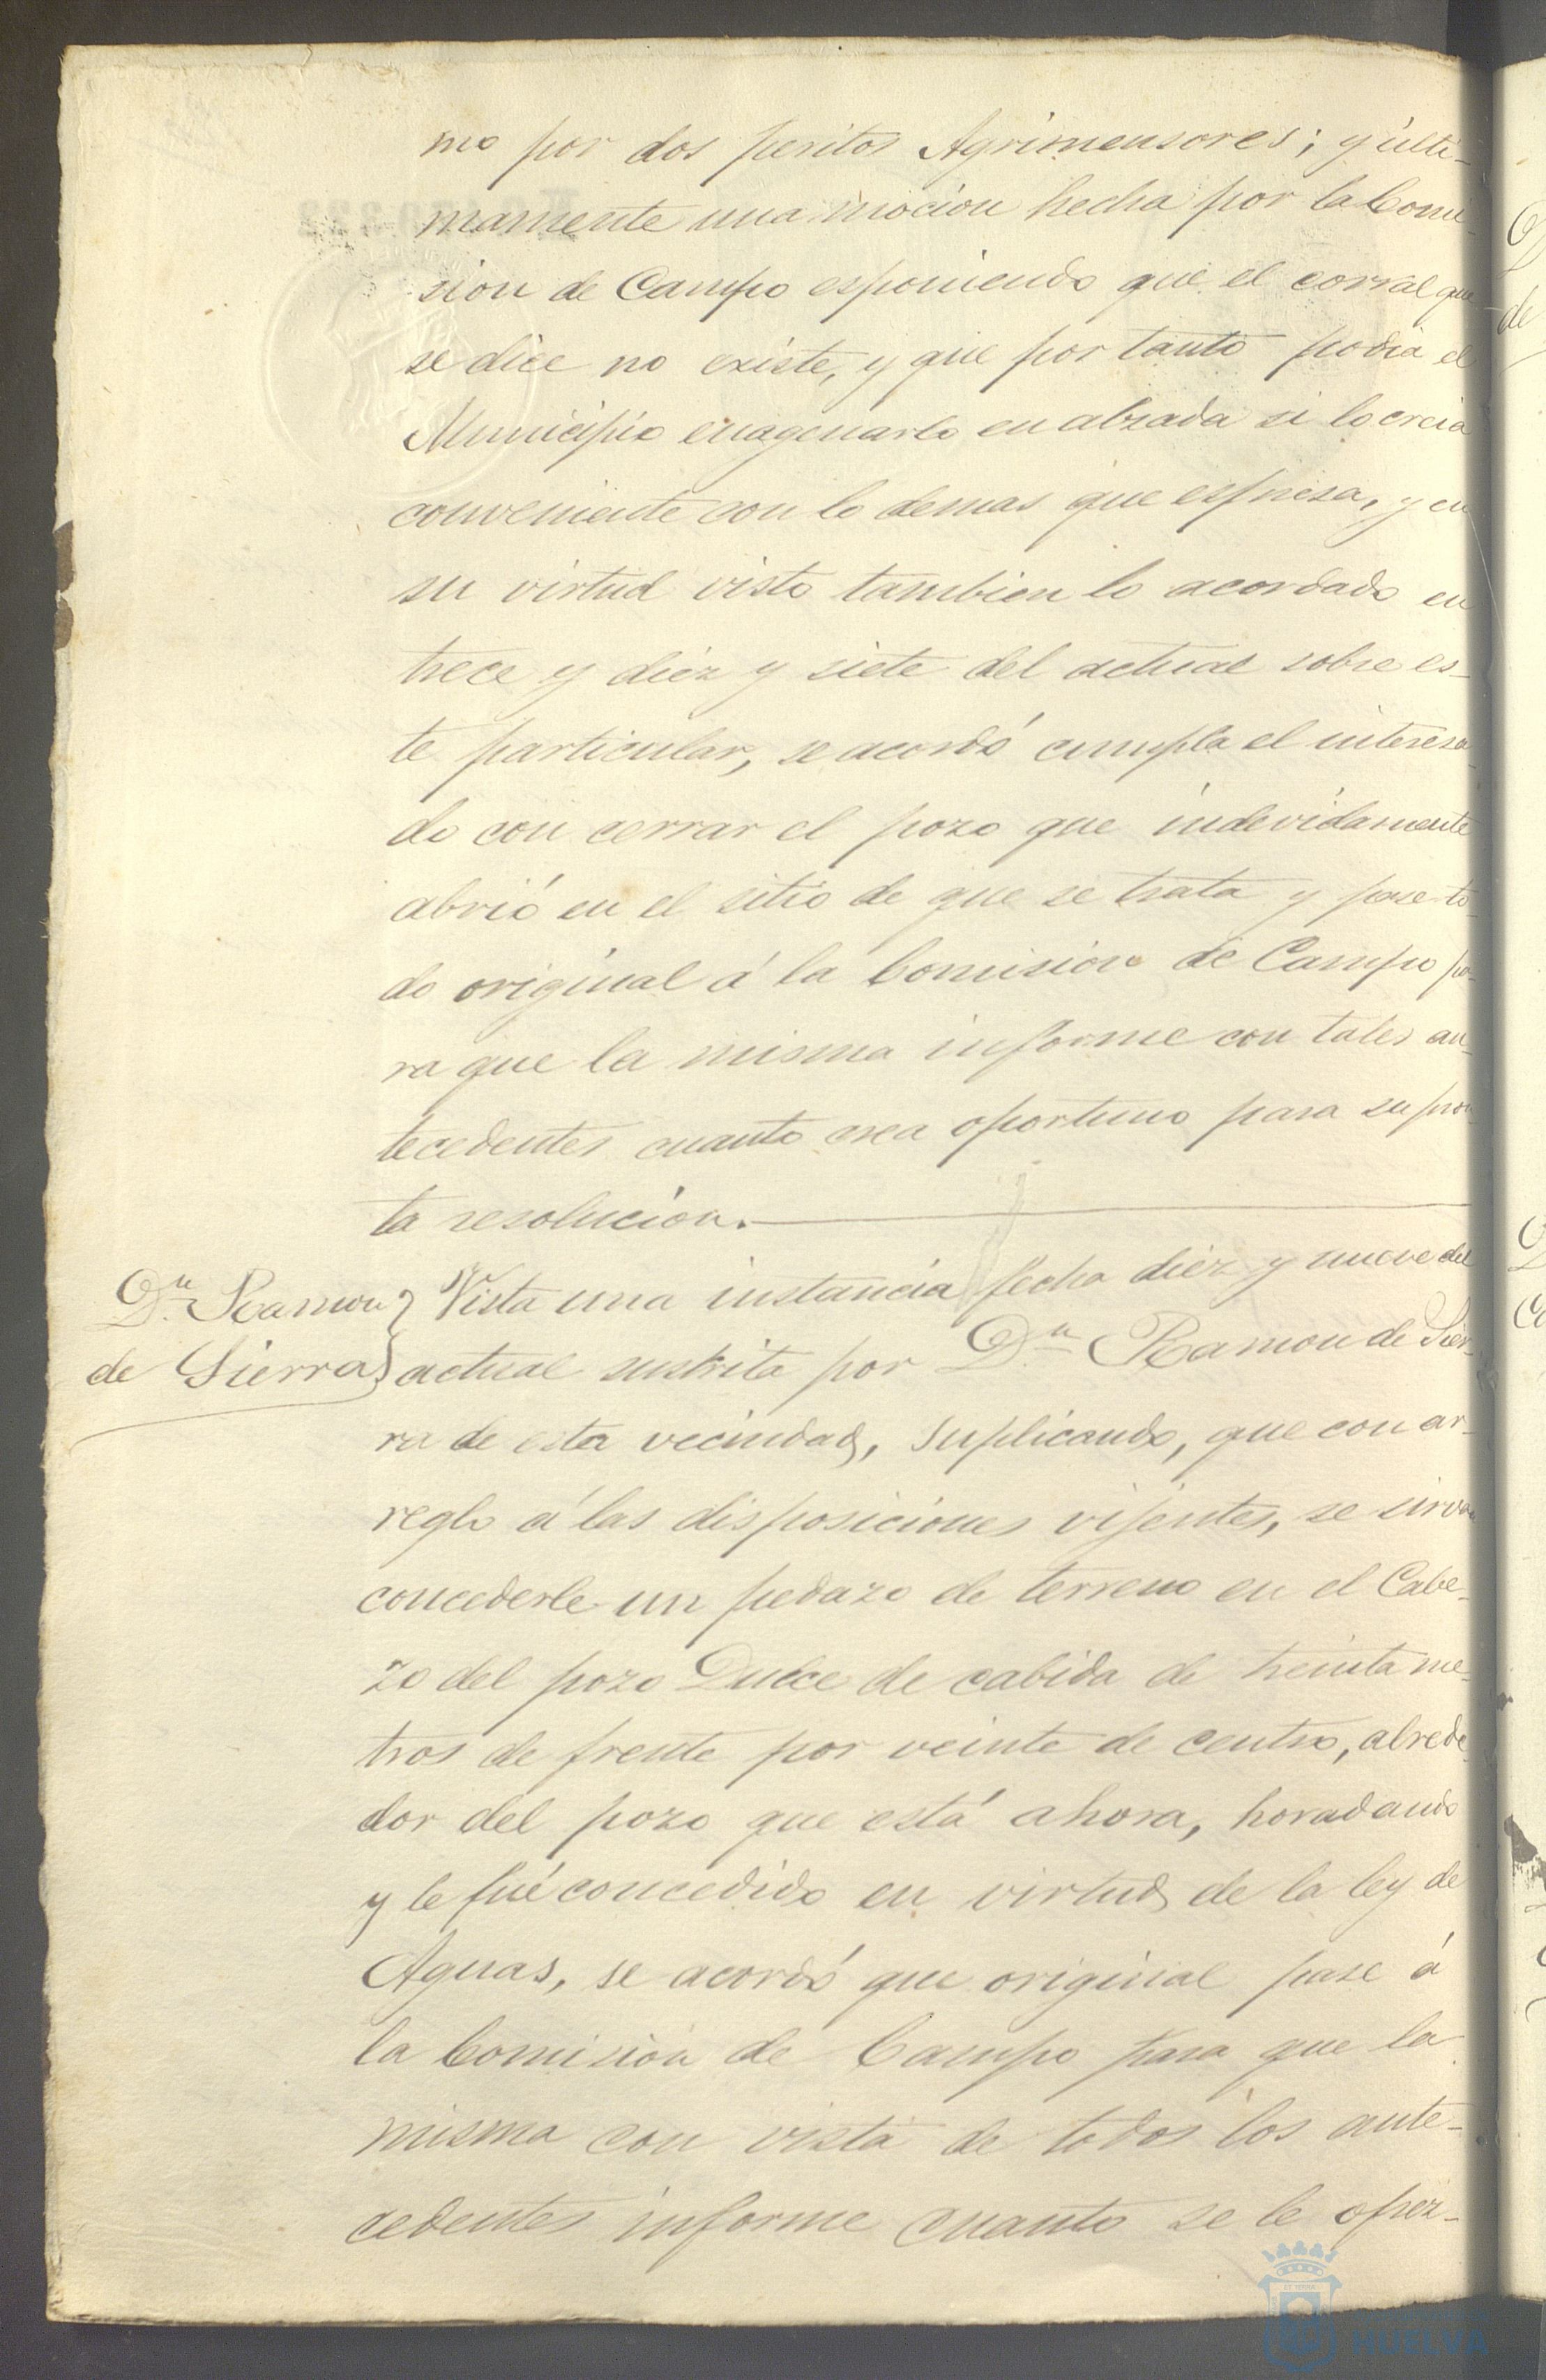 mo por dos peritos Agrimensores; y ulti-
mamente una mocion hecha por la Comi-
sion de Campo esponiendo que el corral que
se dice no existe, y que por tanto podia el
Municipio enagenarlo en alzada si lo creia
conveniente con lo demas que espresa, y en
su virtud visto tambien lo acordado en
trece y diez y siete del actual sobre es-
te particular, se acordó cumpla el interesa-
do con cerrar el pozo que indevidamente
abrió en el sitio de que se trata y pase to-
do original á la Comision de Campo pa-
ra que la misma informe con tales an-
tecedentes cuanto crea oportuno para su pron-
ta resolucion.
Dn. Ramon
de Sierra
Vista una instancia fecha diez y nueve del
actual suskrita por Dn. Ramon de Sier-
ra de esta vecindad, suplicando, que con ar-
reglo á las disposiciones vijentes, se sirva
concederle un pedazo de terreno en el Cabe-
zo del pozo Dulce de cabida de treinta me-
tros de frente por veinte de centro, alrede-
dor del pozo que está ahora, horadando
y le fué concedido en virtud de la ley de
Aguas, se acordó que original pase á
la Comision de Campo para que la
misma con vista de todos los ante-
cedentes informe cuanto se le ofrez-
HUELVA